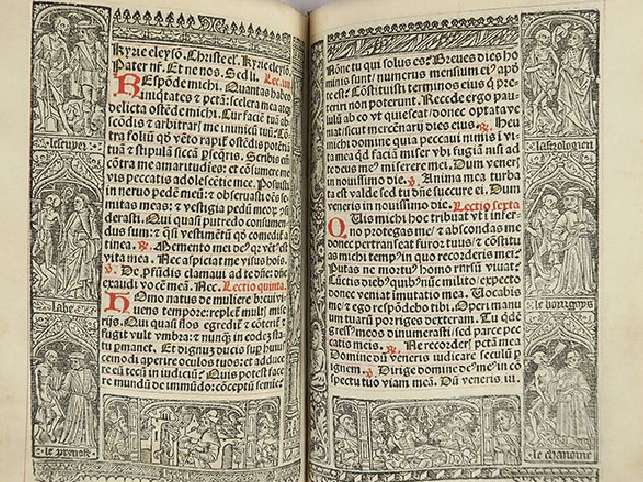 Kyrie eleysõ. Christe el'. Kyrie eleysõ.
Pater nr̃. Et ne nos. Sed li. Lec. iiii.
REspõde michi. Quantas habeo
iniqtates & pctã: scelera mea atq
delicta ostẽde michi. Cur faciẽ tuã ab
scõdis & arbitrar' me inimicũ tuũ: Cõ
tra foliũ qđ vẽto rapit ostẽdis potẽtiã
tuã & stipulã siccã pseqris. Scribis em̃
cõtra me amaritudies: et cõsumere me
vis peccatis adolescẽtie mee. Posuisti
in neruo pedẽ meũ: & obseruasti oẽs se
mitas meas: & vestigia pedũ meor' ysi
derasti. Qui quasi putredo consumen
dus sum: & qsi vestimẽtũ qđ comedit a
tinea. Memento mei de' qr vẽt' est
vita mea. Nec aspiciat me visus hoĩs.
De. pfũdis clamaui ad te dñe: dñe
exaudi vocẽ meã. Nec. Lectio quinta.
HOmo natus de muliere breui vi
uens tempore: replet' mult' mi se
rijs. Qui quasi flos egredit' & cõterit' &
fugit velut vmbra: & nunq in eodẽ sta
tu pmanet. Et dignũ ducis sup huiuf
cemodi aperire oculos tuos: et adduce
re eũ tecũ in iudiciũ: Quis potest face
re mundũ de immũdo: cõceptũ semine
le prince
Nõne tu qui solus es: Breues dies ho
minis sunt: numerus mensium ei' apđ
te est: Cõstituisti terminos eius q pre
teriri non poterunt. Recede ergo pau
lulũ ab eo vt quiescat: donec optata ve
niat sicut mercẽnarij dies eius. Heu
michi domine quia peccaui nimis i vi
ta mea qđ faciã miser vbi fugiã nisi ad
te deus me' miserere mei. Dum vener'
in nouissimo die. Anima mea turba
ta est valde sed tu dñe succurre ei. Dum
veneris in nouissimo die. Lectio sexta
QUis michi hoc tribuat vt i infer
no protegas me: & abscondas me
donec pertranseat furor tuus: & cõstitu
as michi temp' in quo recorderis mei:
Putas ne mortu' homo rursũ viuat:
Cũctis dieb' quib' nũc milito: expecto
donec veniat imutatio mea. Vocabis
me: & ego respõdebo tibi. Operi manu
um tuarũ por iges dexteram. Tu qđẽ
gress' meos dinumerasti: sed parce pec
catis meis. Ne recorder' pctã mea
Domine dũ veneris iudicare seculũ p
ignem. Dirige domine de' me' in cõ
spectu tuo viam meã. Dũ veneris iu.
le bourgoys
le chanoine